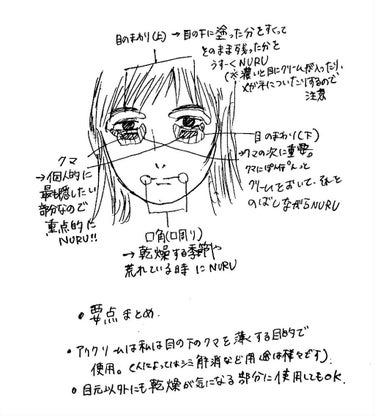 目のまわり(上) → 目の下に塗った分をすくって
そのまま残った分を
うすーくNURU
(※濃いと目にクリームが入ったり、
メガネについたりするので
注意
クマ
→個人的に
最も隠したい
部分なので
重点的に
NURU!!
目のまわり(下)
→クマの次に重要。
クマにぽんぽんっと
クリームをおいて、
のばしながらNURU
口角(口周り)
→ 乾燥する季節や
荒れている時にNURU
• 要点まとめ.
• アイクリームは私は目の下のクマを薄くする目的で
使用。(人によってはシミ解消など用途は様々です)
• 目元以外にも乾燥が気になる部分に使用してもOK.